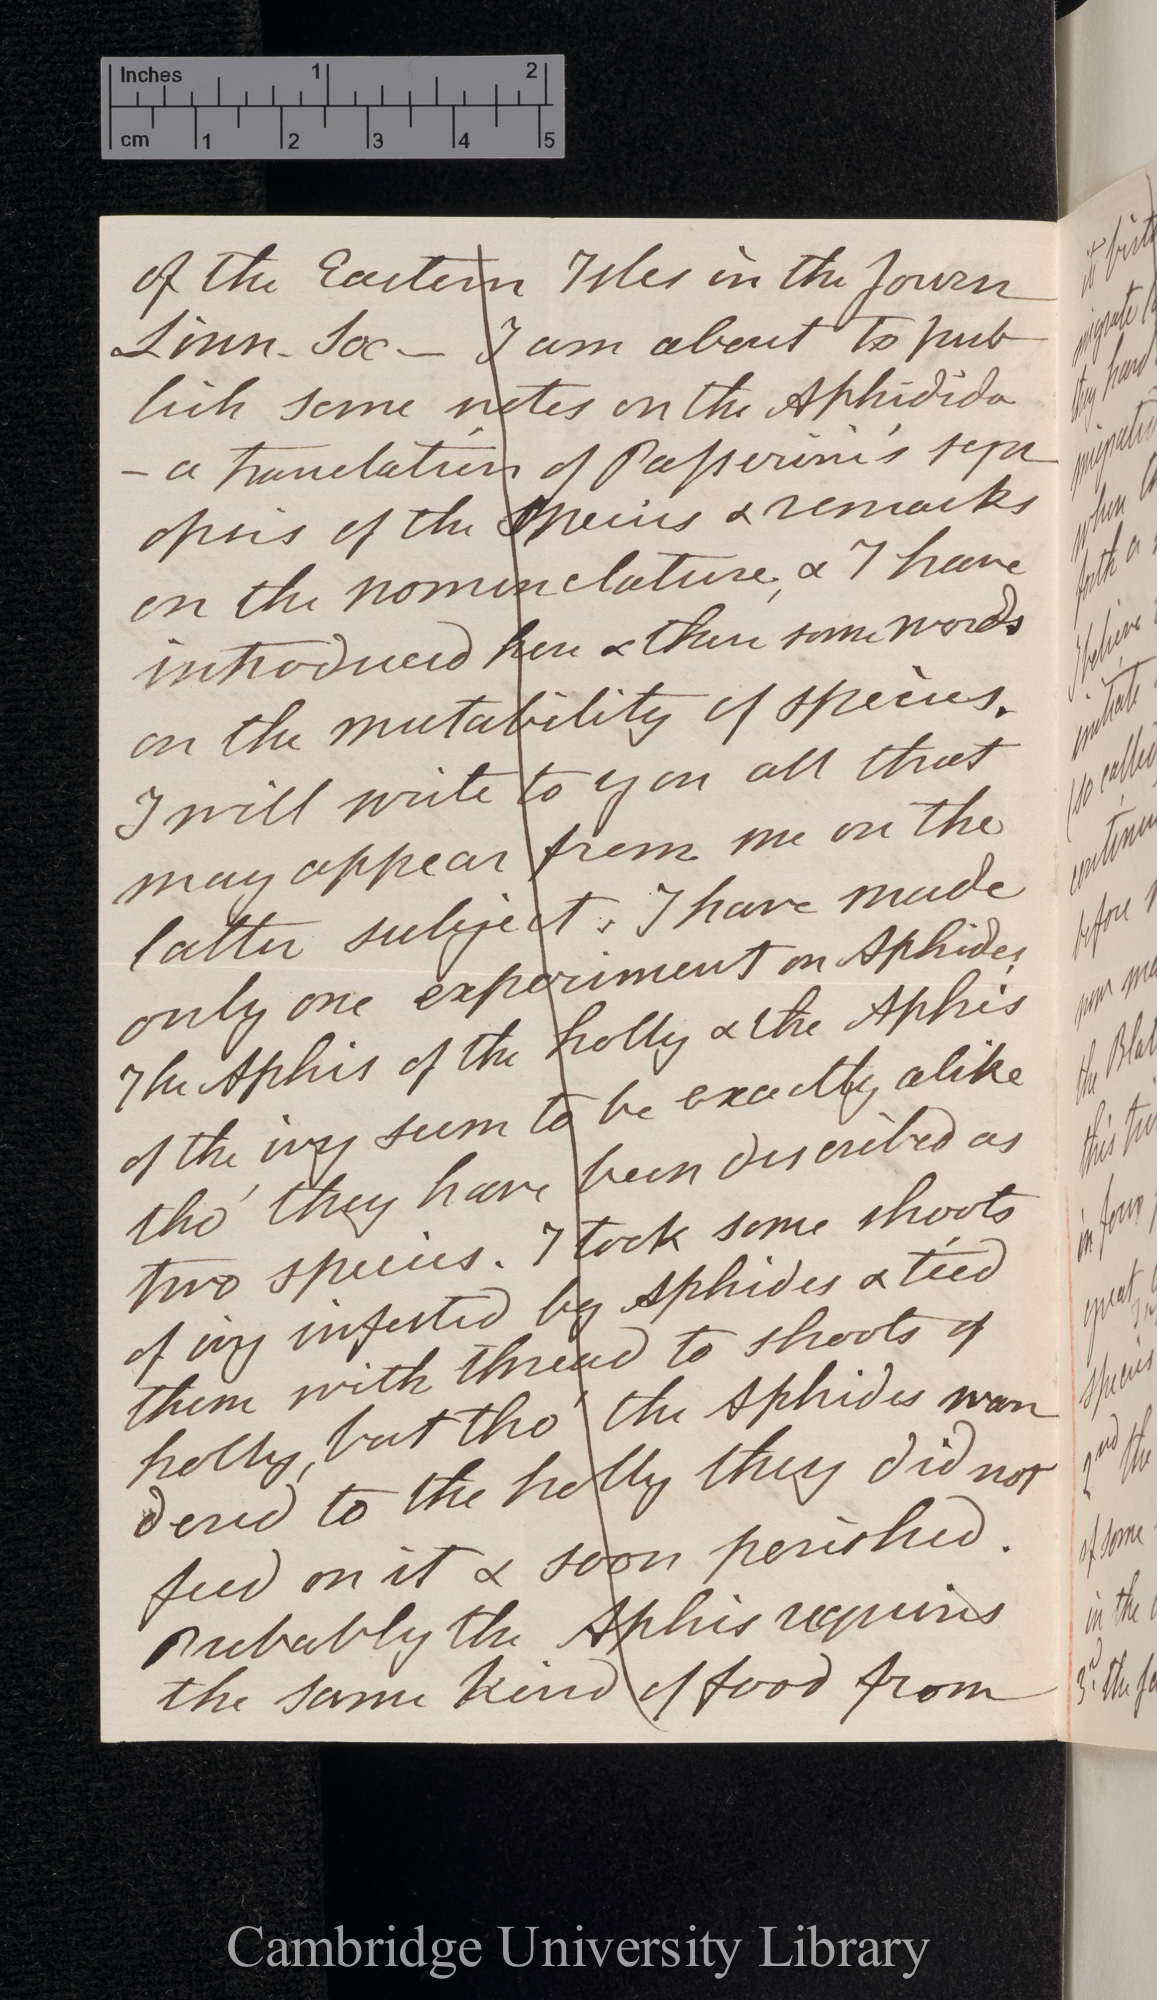 Inches 1 2
cm 1 2 3 4 5
of the Eastern Isles in the Journ
Linn. Soc — I am about to pub
lish some notes on the Aphidida
- a translation of Passerini's syn
opsis of the Species & remarks
on the nomenclature, & I have
introduced here & there some words
on the mutability of species.
I will write to you all that
may appear from me on the
latter subject. I have made
only one experiment on Aphides,
The Aphis of the holly & the Aphis
of the ivy seem to be exactly alike
tho' they have been described as
two species. I took some shoots
of ivy infested by Aphides & tied
them with thread to shoots of
holly, but tho' the Aphides wan
dered to the holly they did not
feed on it & soon perished.
Probably the Aphis requires
the same kind of food from
it
migrate
they hard
migration
when
forth a
I believe
initiate
(so called
before
the
this
in four
great
species
2nd the
of some
in the
3rd the
Cambridge University Library